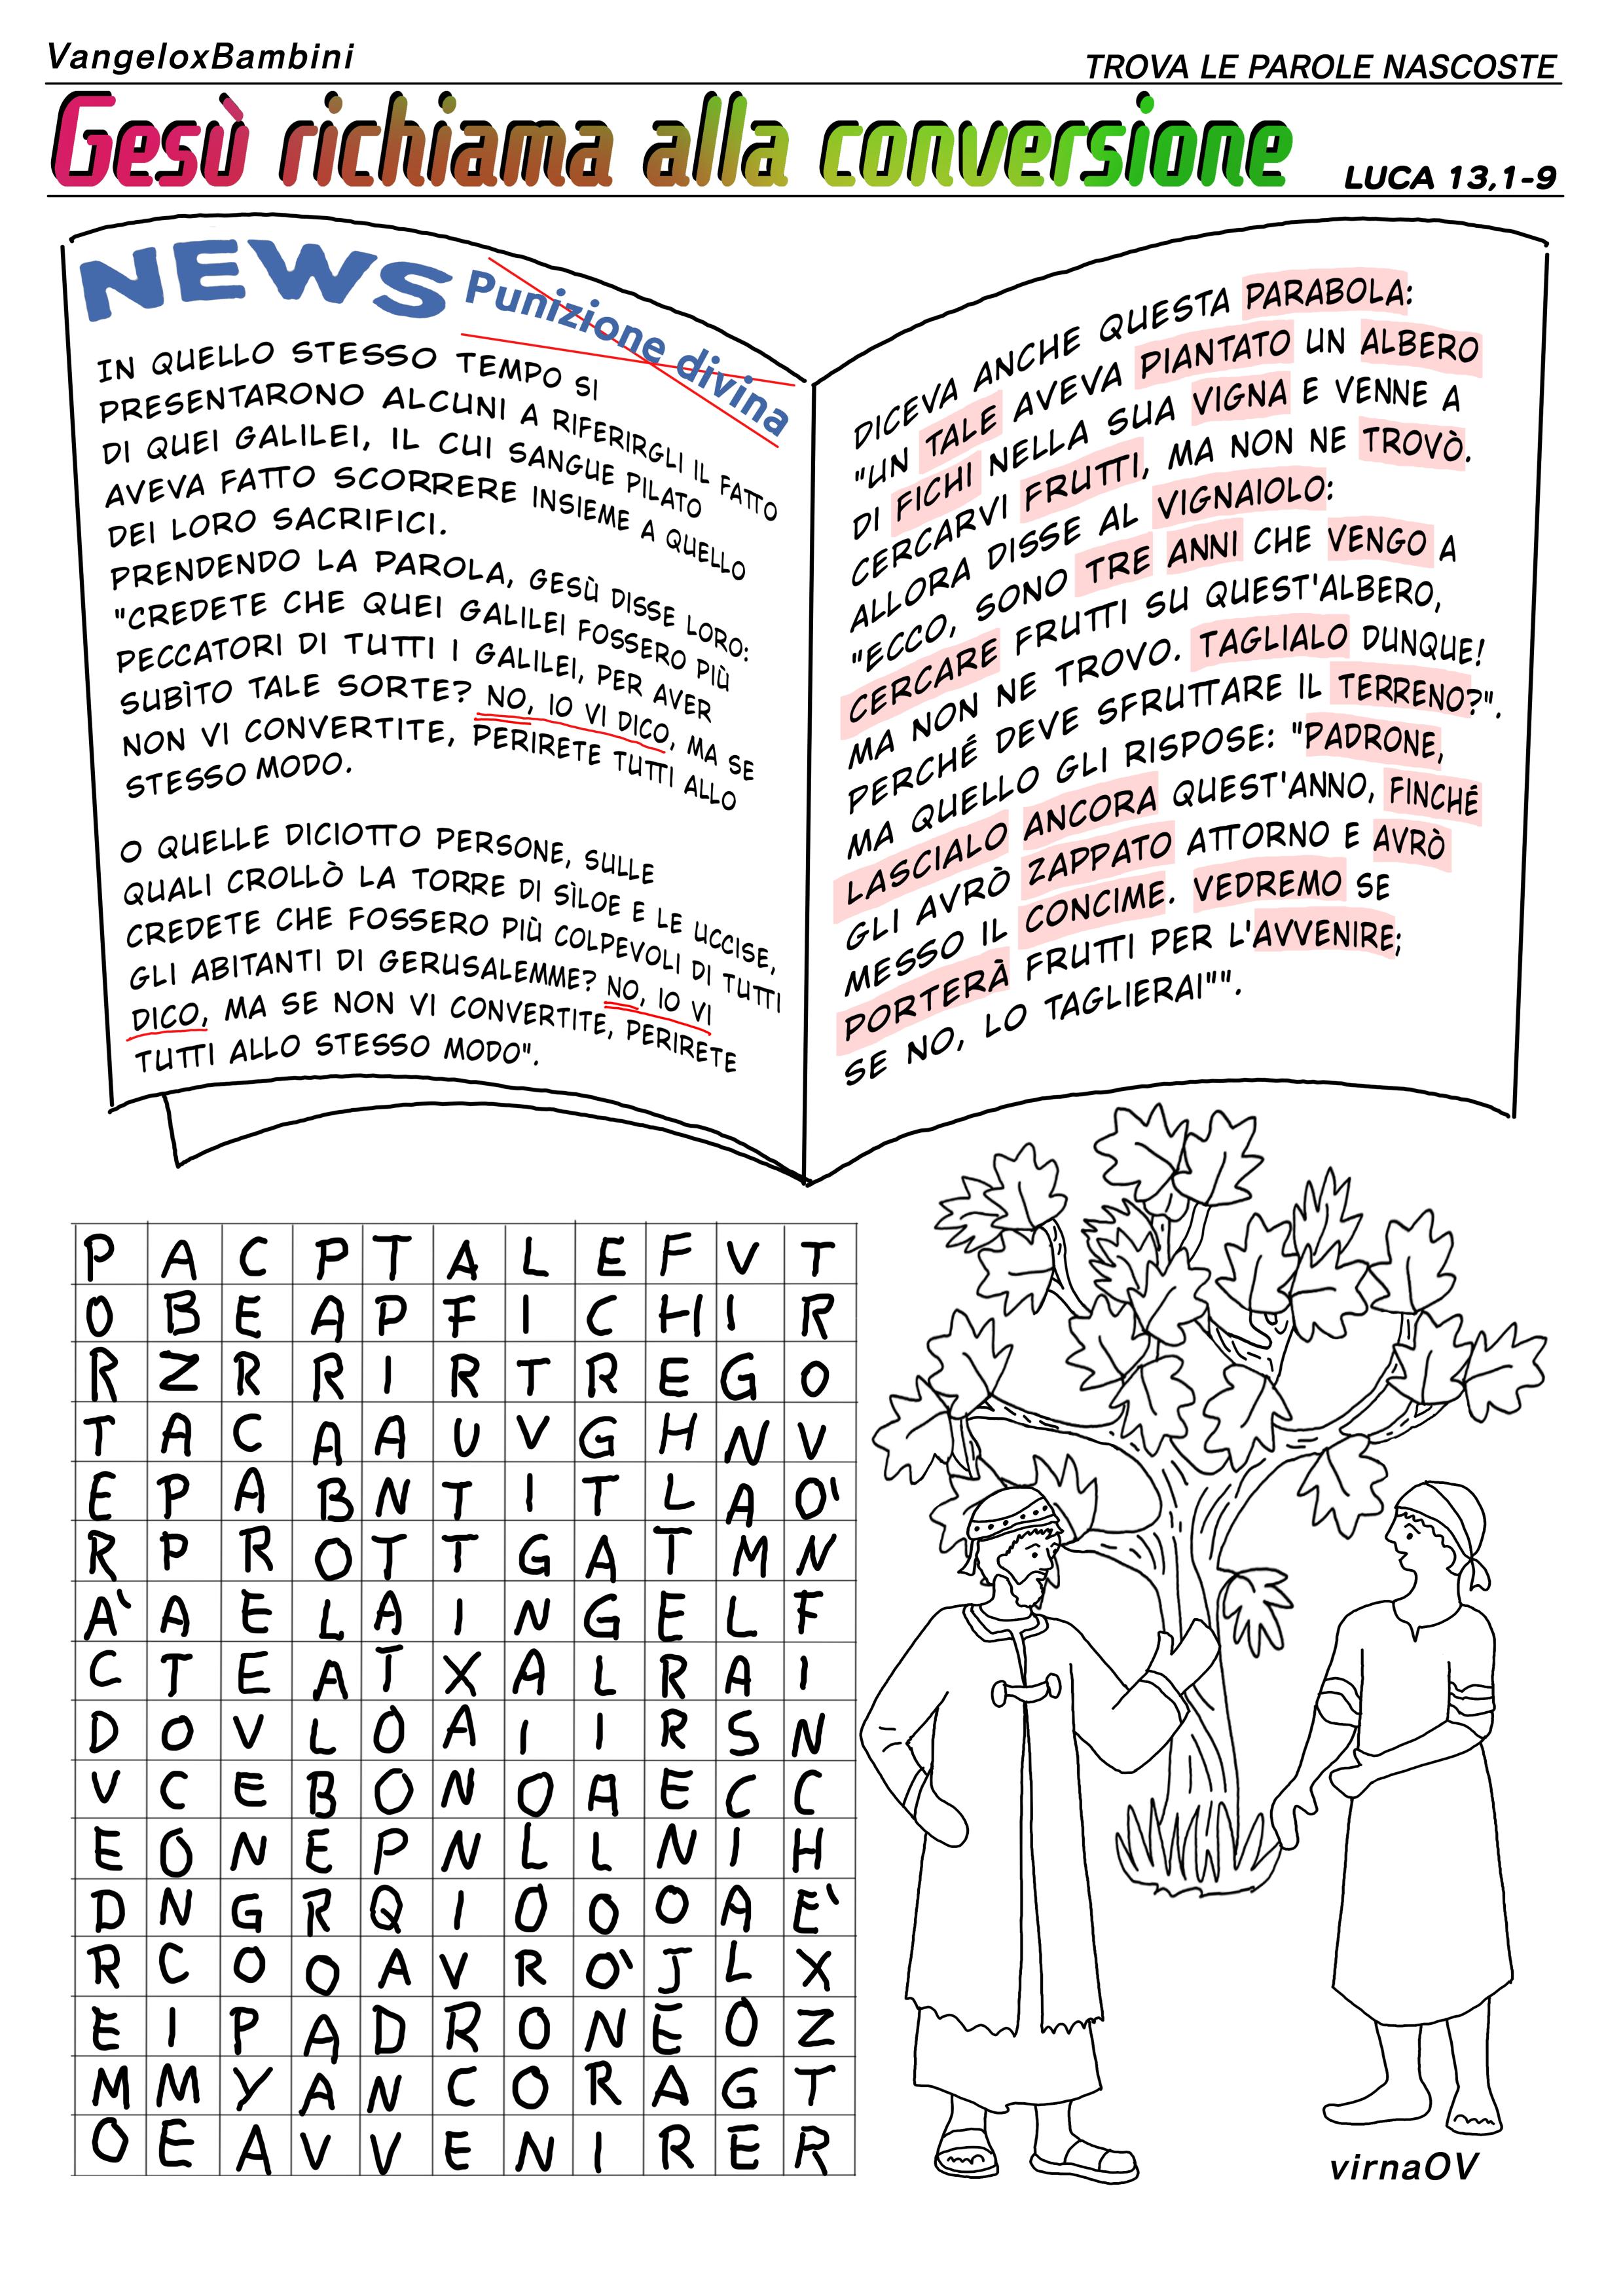 VangeloxBambini
TROVA LE PAROLE NASCOSTE
Gesù richiama alla conversione
LUCA 13,1-9
NEWS
Punizione divina
IN QUELLO STESSO TEMPO SI
PRESENTARONO ALCUNI A RIFERIRGLI IL FATTO
DI QUEI GALILEI, IL CUI SANGUE PILATO
AVEVA FATTO SCORRERE INSIEME A QUELLO
DEI LORO SACRIFICI.
PRENDENDO LA PAROLA, GESÙ DISSE LORO:
"CREDETE CHE QUEI GALILEI FOSSERO PIÙ
PECCATORI DI TUTTI I GALILEI, PER AVER
SUBÌTO TALE SORTE? NO, IO VI DICO, MA SE
NON VI CONVERTITE, PERIRETE TUTTI ALLO
STESSO MODO.
O QUELLE DICIOTTO PERSONE, SULLE
QUALI CROLLÒ LA TORRE DI SÌLOE E LE UCCISE,
CREDETE CHE FOSSERO PIÙ COLPEVOLI DI TUTTI
GLI ABITANTI DI GERUSALEMME? NO, IO VI
DICO, MA SE NON VI CONVERTITE, PERIRETE
TUTTI ALLO STESSO MODO".
DICEVA ANCHE QUESTA PARABOLA:
"UN TALE AVEVA PIANTATO UN ALBERO
DI FICHI NELLA SUA VIGNA E VENNE A
CERCARVI FRUTTI, MA NON NE TROVÒ.
ALLORA DISSE AL VIGNAIOLO:
"ECCO, SONO TRE ANNI CHE VENGO A
CERCARE FRUTTI SU QUEST'ALBERO,
MA NON NE TROVO. TAGLIALO DUNQUE!
PERCHÉ DEVE SFRUTTARE IL TERRENO?".
MA QUELLO GLI RISPOSE: "PADRONE,
LASCIALO ANCORA QUEST'ANNO, FINCHÉ
GLI AVRÒ ZAPPATO ATTORNO E AVRÒ
MESSO IL CONCIME. VEDREMO SE
PORTERÀ FRUTTI PER L'AVVENIRE;
SE NO, LO TAGLIERAI"".
P A C P T A L E F V T
O B E A P F I C H I R
R Z R R I R T R E G O
T A C A A U V G H N V
E P A B N T I T L A O'
R P R O T T G A T M N
A' A E L A I N G E L F
C T E A T X A L R A I
D O V L O A I I R S N
V C E B O N O A E C C
E O N E P N L L N I H
D N G R Q I O O O A E'
R C O O A V R O' J L X
E I P A D R O N E O Z
M M Y A N C O R A G T
O E A V V E N I R E R
virnaOV